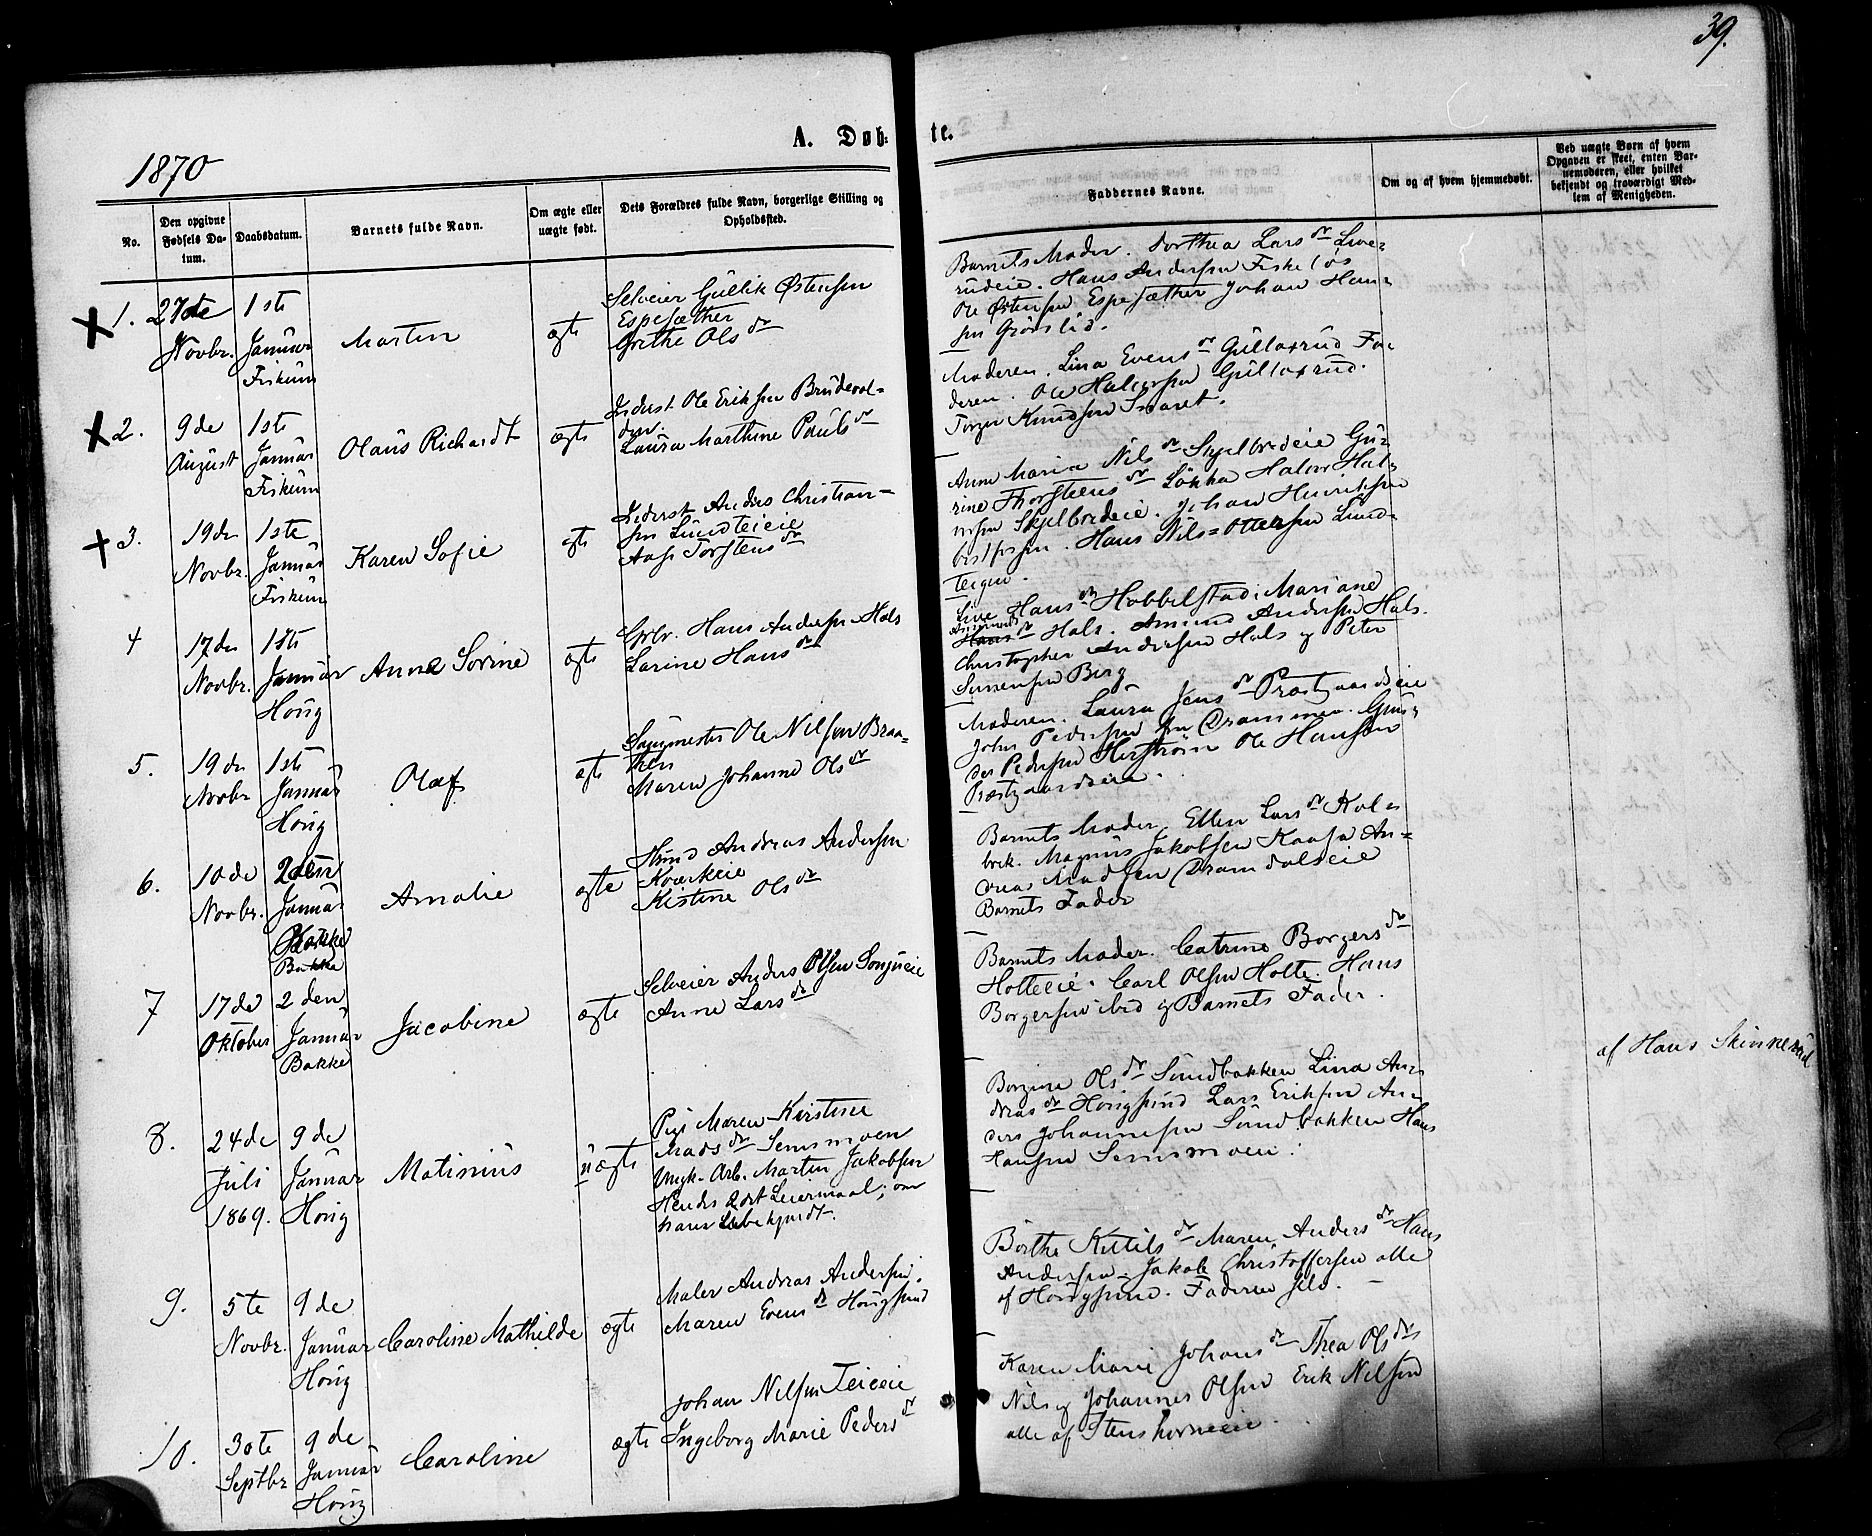 39.
A. Døb-
te.
1870
No.
Den opgivne
Fødsels Da-
tum.
Daabsdatum.
Barnets fulde Navn.
Om ægte eller
uægte født.
Dets Forældres fulde Navn, borgerlige Stilling og
Opholdssted.
Faddernes Navne.
Om og af hvem hjemmedøbt.
Ved uægte Børn af hvem
Opgaven er skeet, enten Bar-
nemoderen, eller hvilket
bekjendt og troværdigt Med-
lem af Menigheden.
1.
27de
Novbr.
1ste
Januar
Fiskum
Martin
ægte
Selveier Gullik Østensen
Espesæther
Grethe Ols dr
Barnets Moder. Dorthea Lars dr Live-
rudeie. Hans Andersen Fiskeløs
Ole Østensen Espesæther Johan Han-
sen Grøslid.
2.
9de
August
1ste
Januar
Fiskum
Olaus Richardt
ægte
Inderst Ole Eriksen Brudevol-
den.
Laura Marthine Pauls dr
Moderen. Lina Evens dr Gullaxrud Fa-
deren. Ole Halvorsen Gullaxrud.
Torger Knudsen
3.
19de
Novbr.
1ste
Januar
Fiskum
Karen Sofie
ægte
Inderst Anders Christian-
sen Lundteieie
Aase Torstens dr
Anne Maria Nils dr Skjelbredeie Gu-
rine Thorsteens dr Løkka Halvor Hal-
vorsen Skjelbredeie. Johan Henriksen
Hans Nils=Ottersen Lund-
teigen.
4
17de
Novbr.
1ste
Januar
Houg
Anne Sorine
ægte
Gbr. Hans Andersen Hals
Larine Hans dr
Live Hans dr Hobbelstad. Mariane
Hans dr Hals. Amund Andersen Hals.
Christopher Andersen Hals og Peter
Simensen Berg
5.
19de
Novbr
1ste
Januar
Houg
Olaf
ægte
Sagmester Ole Nilsen Braa-
then
Maren Johanne Ols dr
Moderen. Laura Jens dr Præstgaardseie
John Pedersen fra Drammen. Gun-
der Pedersen Ole Hansen
Præstgaardseie.
6.
10de
Novbr.
2den
Januar
Bakke
Amalie
ægte
Hmd Andreas Andersen
Kværkeie
Kistine Ols dr
Barnets Moder Ellen Lars dr Kol-
brek. Magnus Jakobsen Kaasa An-
dreas Madsen Dramdalseie
Barnets Fader
7
17de
Oktober
2den
Januar
Bakke
Jacobine
ægte
Selveier Anders Olsen Sonjueie
Anne Lars dr
Barnets Moder. Catrine Borgers dr
Holteeie. Carl Olsen Holte. Hans
Borgersen ibid og Barnets Fader.
8.
24de
Juli
1869.
9de
Januar
Houg
Matinius
uægte
Pige Maren Kirstine
Mads dr Semsmoen
Ungk. Arb. Martin Jakobsen
Hendes 2det Leiermaal; om
hans Ubekjendt.
Borgine Ols dr Sundbakken Lina An-
dreas dr Hougsund Lars Eriksen An-
ders Johannesen Sundbakken Hans
Hansen Semsmoen.
af Hans Skinnerud
9.
5te
Novbr.
9de
Januar
Houg
Caroline Mathilde
ægte
Maler Andreas Andersen.
Maren Evens dr Hougsund
Børthe Kittils dr Maren Anders dr Hans
Andersen - Jakob Christoffersen alle
af Hougsund. Faderen selv.
10.
30te
Septbr
9de
Januar
Houg
Caroline
ægte
Johan Nilsen Teieeie
Ingeborg Marie Peders dr
Karen Marie Johans dr Thea Ols dr
Nils og Johannes Olsen Erik Nilsen
alle af Stenshorneeie.